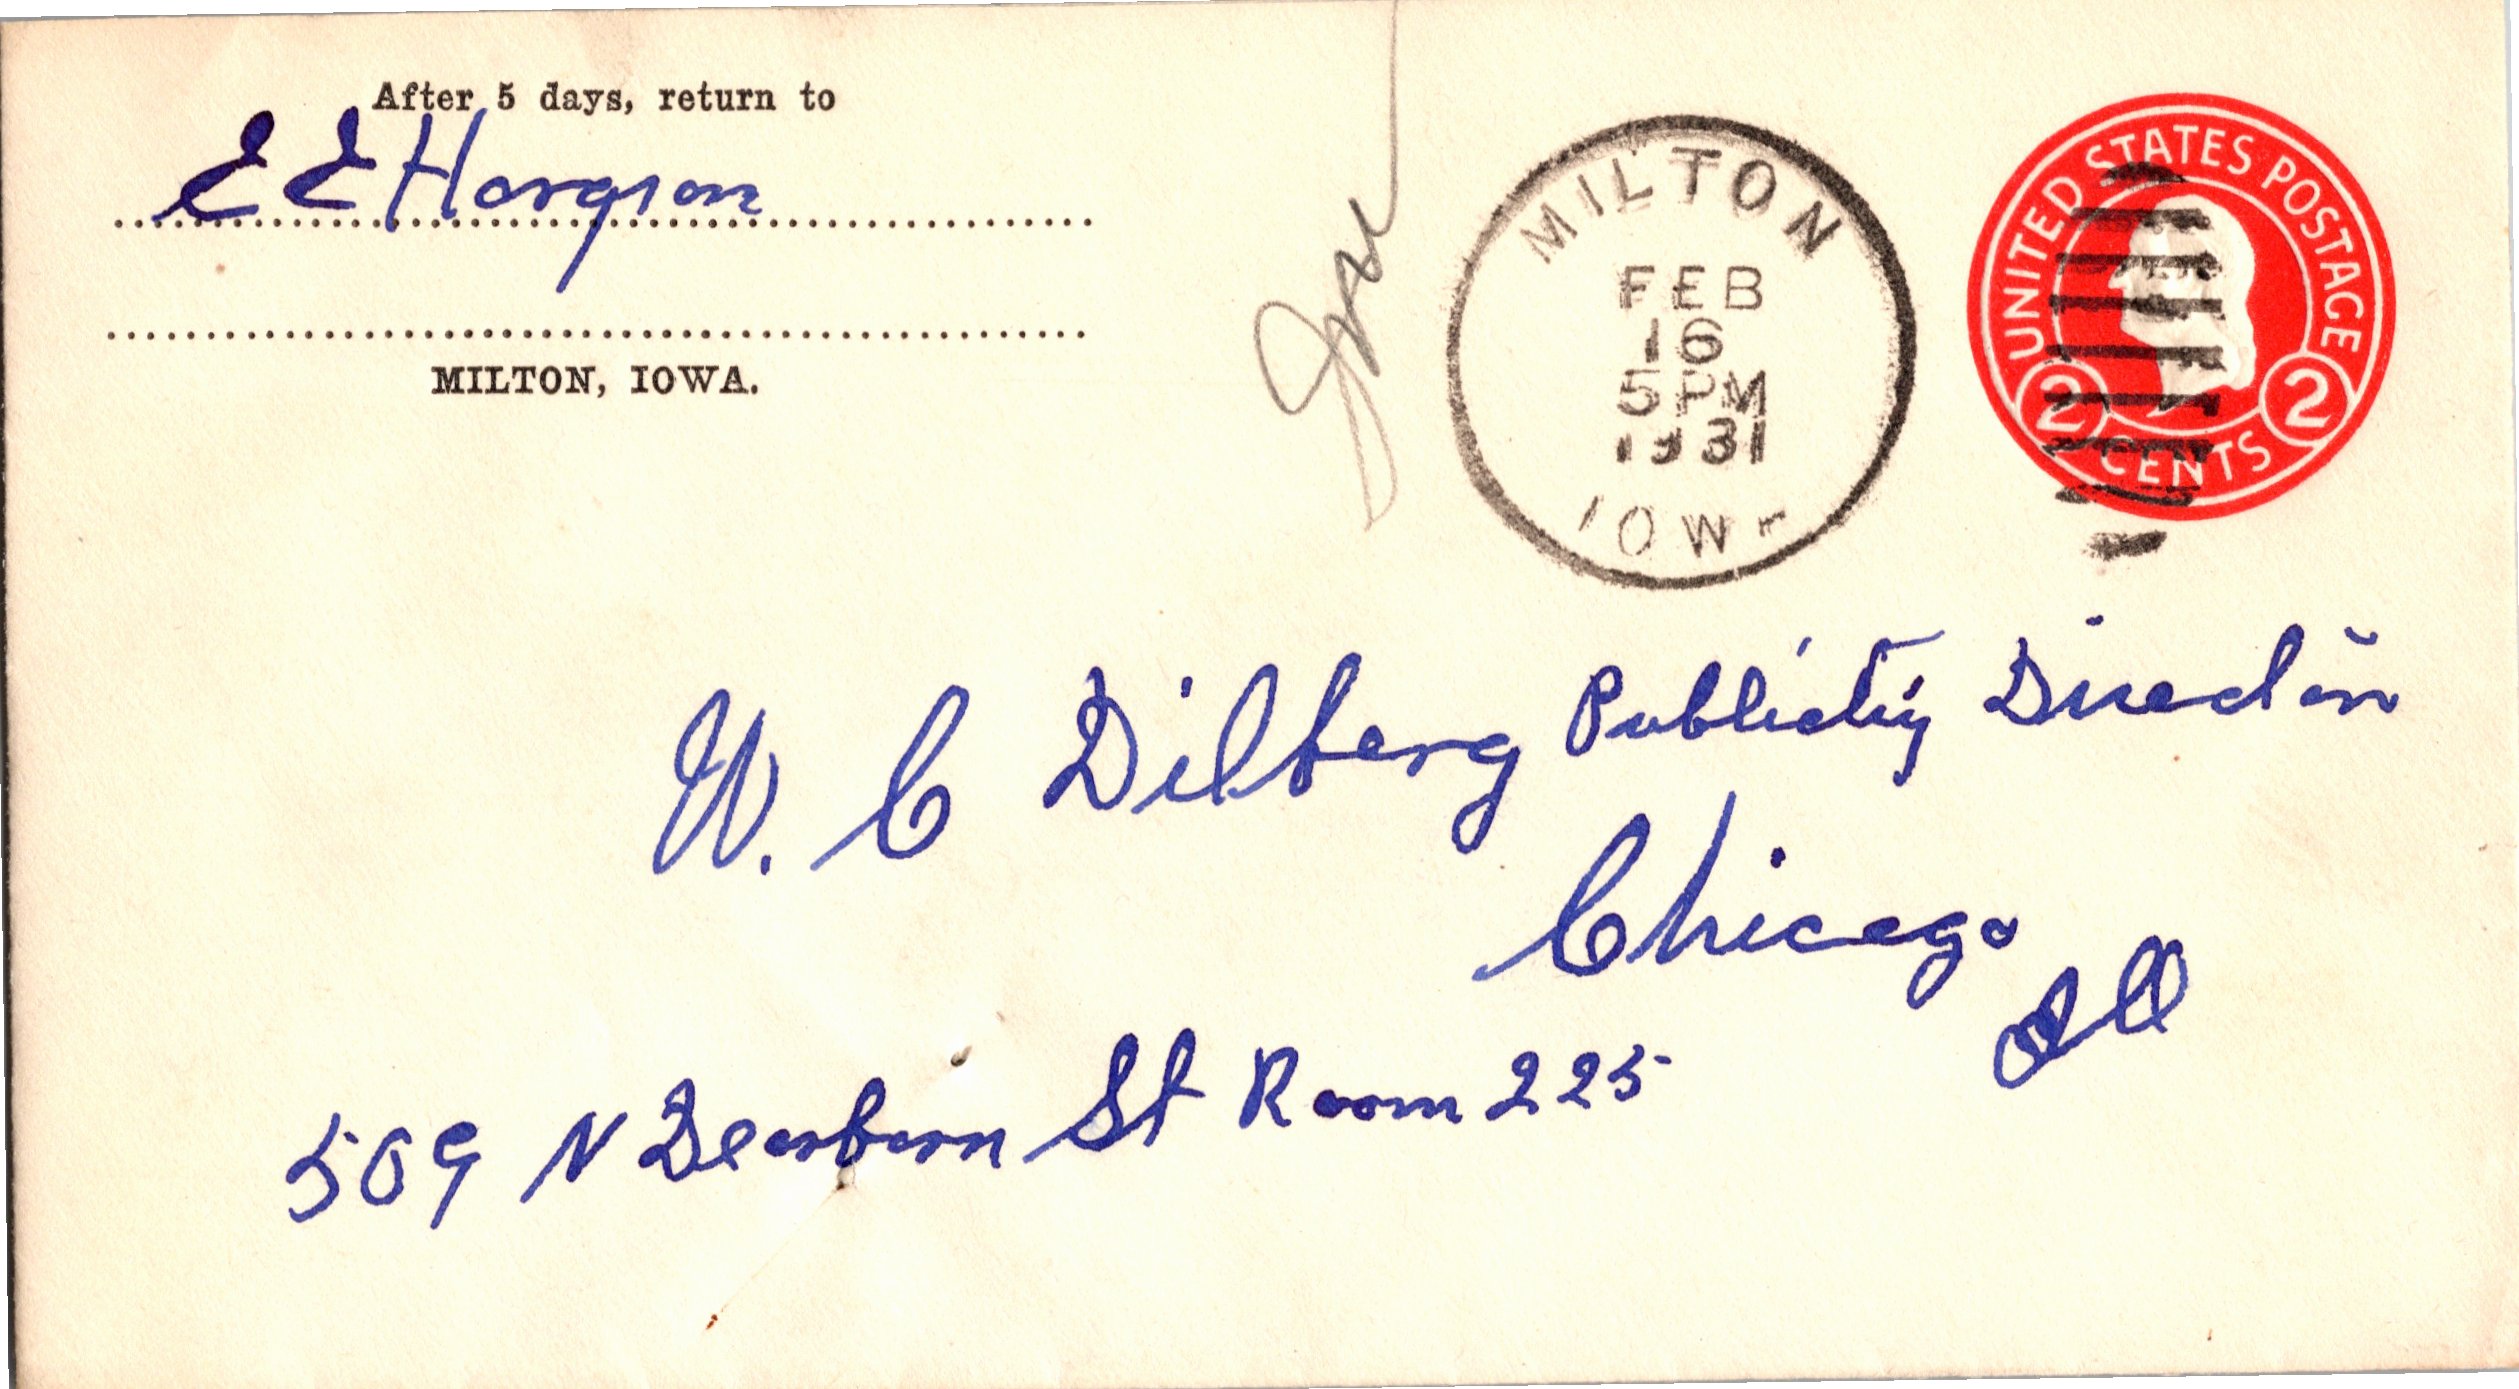 After 5 days, return to
E E Horgson
MILTON, IOWA.
MILTON
FEB
16
5 PM
1931
IOWA
UNITED STATES POSTAGE
2 CENTS 2
W. C Dilberg Publicity Director
Chicago
Ill
509 N Dearborn St Room 225